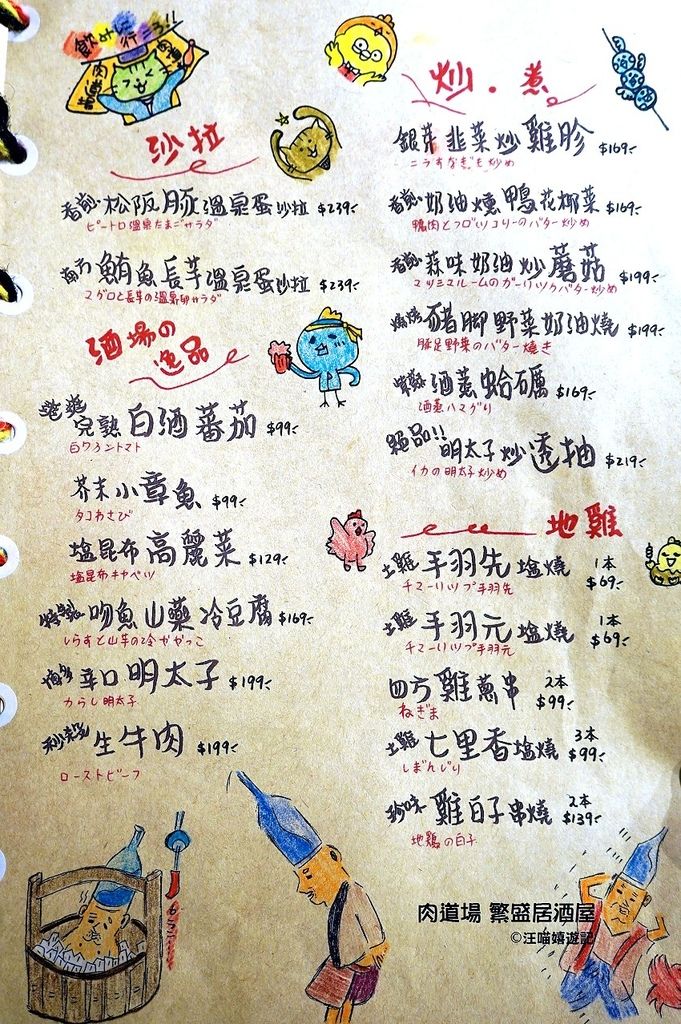 飲みに行こう!!
肉道場
沙拉
香煎松阪豚溫泉蛋沙拉 $239-
ピートロ温泉たまごサラダ
南方鮪魚長芋溫泉蛋沙拉 $239-
マグロと長芋の温泉卵サラダ
酒場の
逸品
完熟白酒蕃茄 $99-
白ワイントマト
芥末小章魚 $99-
タコわさび
塩昆布高麗菜 $129-
塩昆布キャベツ
特製吻魚山藥冷豆腐 $169-
しらすと山芋の冷ややっこ
博多辛口明太子 $199-
からし明太子
生牛肉 $199-
ローストビーフ
炒・煮
銀芽韭菜炒雞胗 $169-
ニラすなぎも炒め
香煎奶油燻鴨花椰菜 $169-
鴨肉とブロッコリーのバター炒め
香煎蒜味奶油炒蘑菇 $199-
マッシュルームのガーリックバター炒め
豬腳野菜奶油燒 $199-
豚足野菜のバター焼き
酒蒸蛤蠣 $169-
酒蒸ハマグリ
絕品!!明太子炒透抽 $219-
イカの明太子炒め
地雞
土雞手羽先塩燒 1本 $69-
チューリップ手羽先
土雞手羽元塩燒 1本 $69-
チューリップ手羽元
四方雞蔥串 2本 $99-
ねぎま
土雞七里香塩燒 3本 $99-
しぼんじり
珍味雞白子串燒 2本 $139-
地鶏の白子
肉道場 繁盛居酒屋
©汪喵嬉遊記